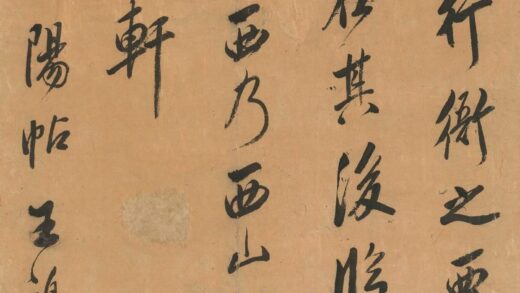 行衙之西
其後臨
西乃西山
軒
陽帖王